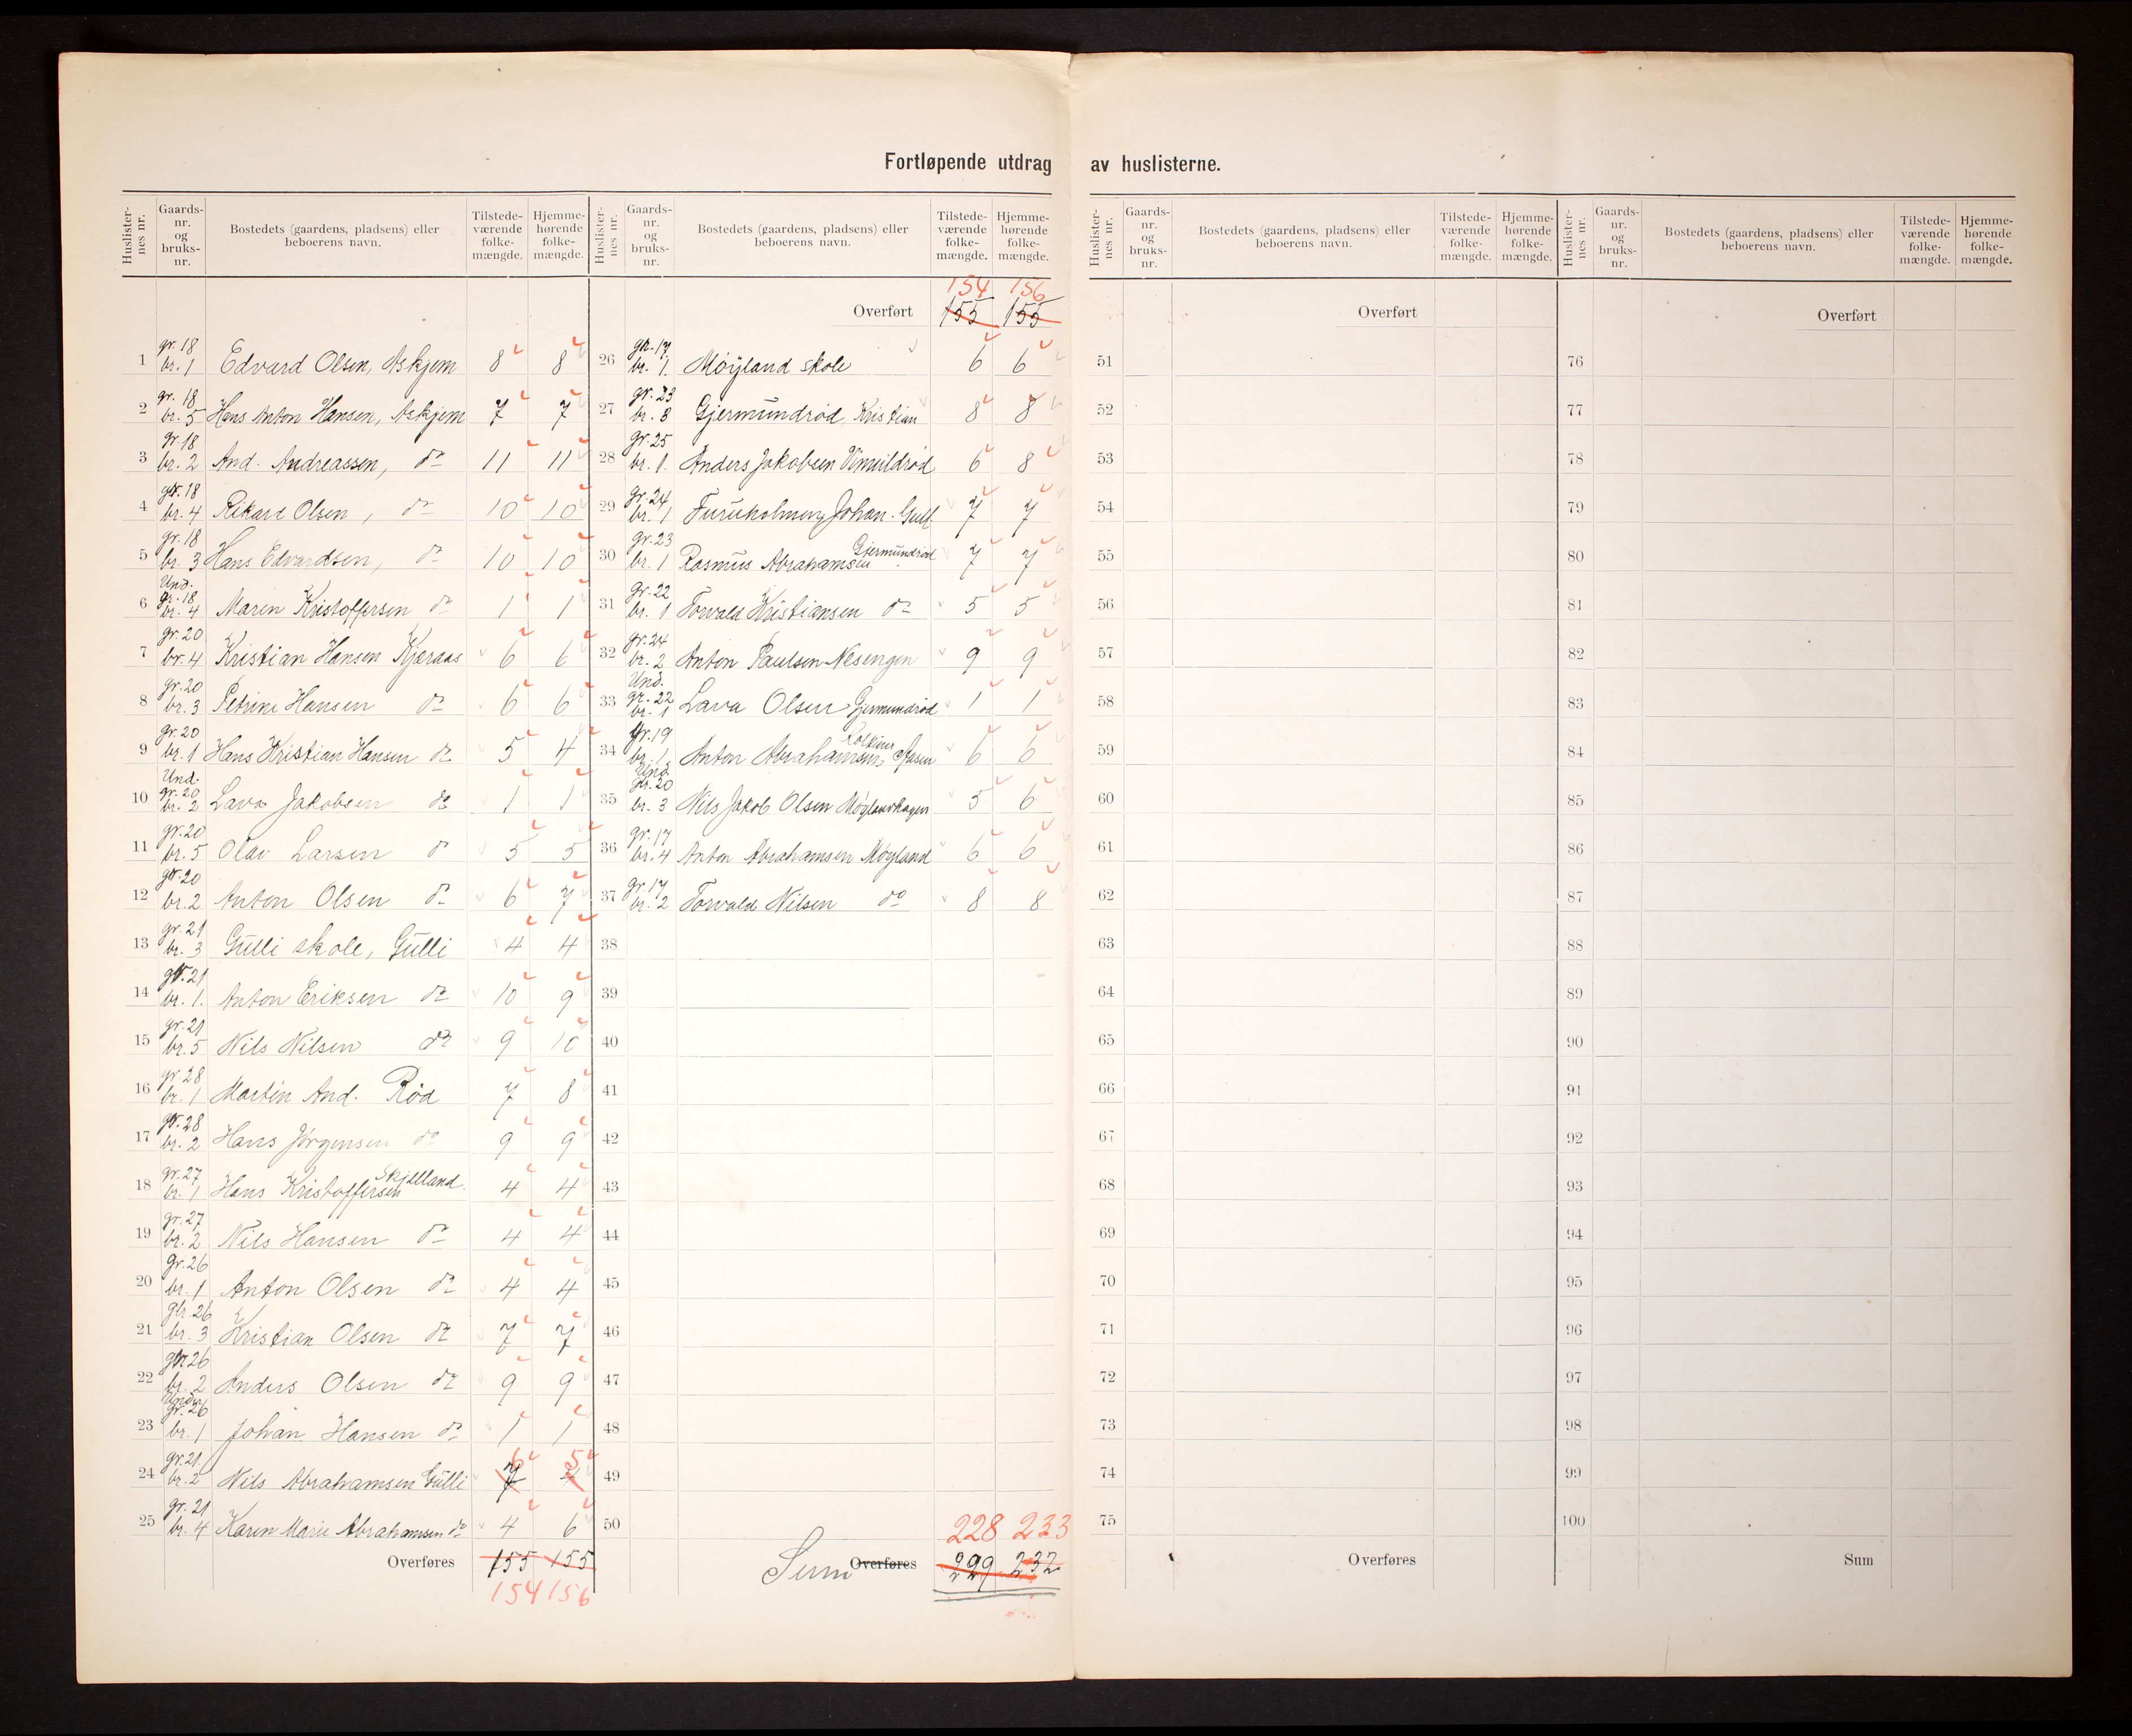 Fortløpende utdrag av huslisterne.
Huslister-nes nr. Gaards-nr. og bruks-nr. Bostedets (gaardens, pladsens) eller beboerens navn. Tilstede-værende folke-mængde. Hjemme-hørende folke-mængde.
1 gr. 18 br. 1 Edvard Olsen, Askjem 8 8
2 gr. 18 br. 5 Hans Anton Hansen, Askjem 7 7
3 gr. 18 br. 2 And. Andreassen, do 11 11
4 gr. 18 br. 4 Rikard Olsen, do 10 10
5 gr. 18 br. 3 Hans Edvardsen, do 10 10
6 Und. gr. 18 br. 4 Maren Kristoffersen do 1 1
7 gr. 20 br. 4 Kristian Hansen Kjæraas 6 6
8 gr. 20 br. 3 Petrine Hansen do 6 6
9 gr. 20 br. 1 Hans Kristian Hansen do 5 4
10 Und. gr. 20 br. 2 Lava Jakobsen do 1 1
11 gr. 20 br. 5 Olav Larsen do 5 5
12 gr. 20 br. 2 Anton Olsen do 6 7
13 gr. 21 br. 3 Gulli skole, Gulli 4 4
14 gr. 21 br. 1. Anton Eriksen do 10 9
15 gr. 21 br. 5 Nils Nilsen do 9 10
16 gr. 28 br. 1 Martin And. Rød 7 8
17 gr. 28 br. 2 Hans Jørgensen do 9 9
18 gr. 27 br. 1 Hans Kristoffersen Skjelland 4 4
19 gr. 27 br. 2 Nils Hansen do 4 4
20 gr. 26 br. 1 Anton Olsen do 4 4
21 gr. 26 br. 3 Kristian Olsen do 7 7
22 gr. 26 br. 2 Anders Olsen do 9 9
23 Under gr. 26 br. 1 Johan Hansen do 1 1
24 gr. 21. br. 2 Nils Abrahamsen Gulli 7 6 5
25 gr. 21 br. 4 Karen Marie Abrahamsen do 4 6
Overføres 155 155
154 156
Huslister-nes nr. Gaards-nr. og bruks-nr. Bostedets (gaardens, pladsens) eller beboerens navn. Tilstede-værende folke-mængde. Hjemme-hørende folke-mængde.
154 156
Overført 155 155
26 gr. 17 br. 1. Møyland skole 6 6
27 gr. 23 br. 3 Gjermundrød, Kristian 8 8
28 gr. 25 br. 1. Anders Jakobsen 6 8
29 gr. 24 br. 1 Furuholmen, Johan. Gull. 7 7
30 gr. 23 br. 1 Rasmus Abrahamsen Gjermundrød 7 7
31 gr. 22 br. 1 Torvald Kristiansen do 5 5
32 gr. 24 br. 2 Anton Paulsen Nesengen 9 9
33 Und. gr. 22 br. 1 Lava Olsen Gjermundrød 1 1
34 gr. 19 br. 1. Anton Abrahamsen, Aasen 6 6
35 Und. gr. 20 br. 3 Nils Jakob Olsen Møylandhagen 5 6
36 gr. 17 br. 4 Anton Abrahamsen Møyland 6 6
37 gr. 17 br. 2 Torvald Nilsen do 8 8
38
39
40
41
42
43
44
45
46
47
48
49
50
228 233
Sum Overføres 229 232
Huslister-nes nr. Gaards-nr. og bruks-nr. Bostedets (gaardens, pladsens) eller beboerens navn. Tilstede-værende folke-mængde. Hjemme-hørende folke-mængde.
Overført
51
52
53
54
55
56
57
58
59
60
61
62
63
64
65
66
67
68
69
70
71
72
73
74
75
Overføres
Huslister-nes nr. Gaards-nr. og bruks-nr. Bostedets (gaardens, pladsens) eller beboerens navn. Tilstede-værende folke-mængde. Hjemme-hørende folke-mængde.
Overført
76
77
78
79
80
81
82
83
84
85
86
87
88
89
90
91
92
93
94
95
96
97
98
99
100
Sum